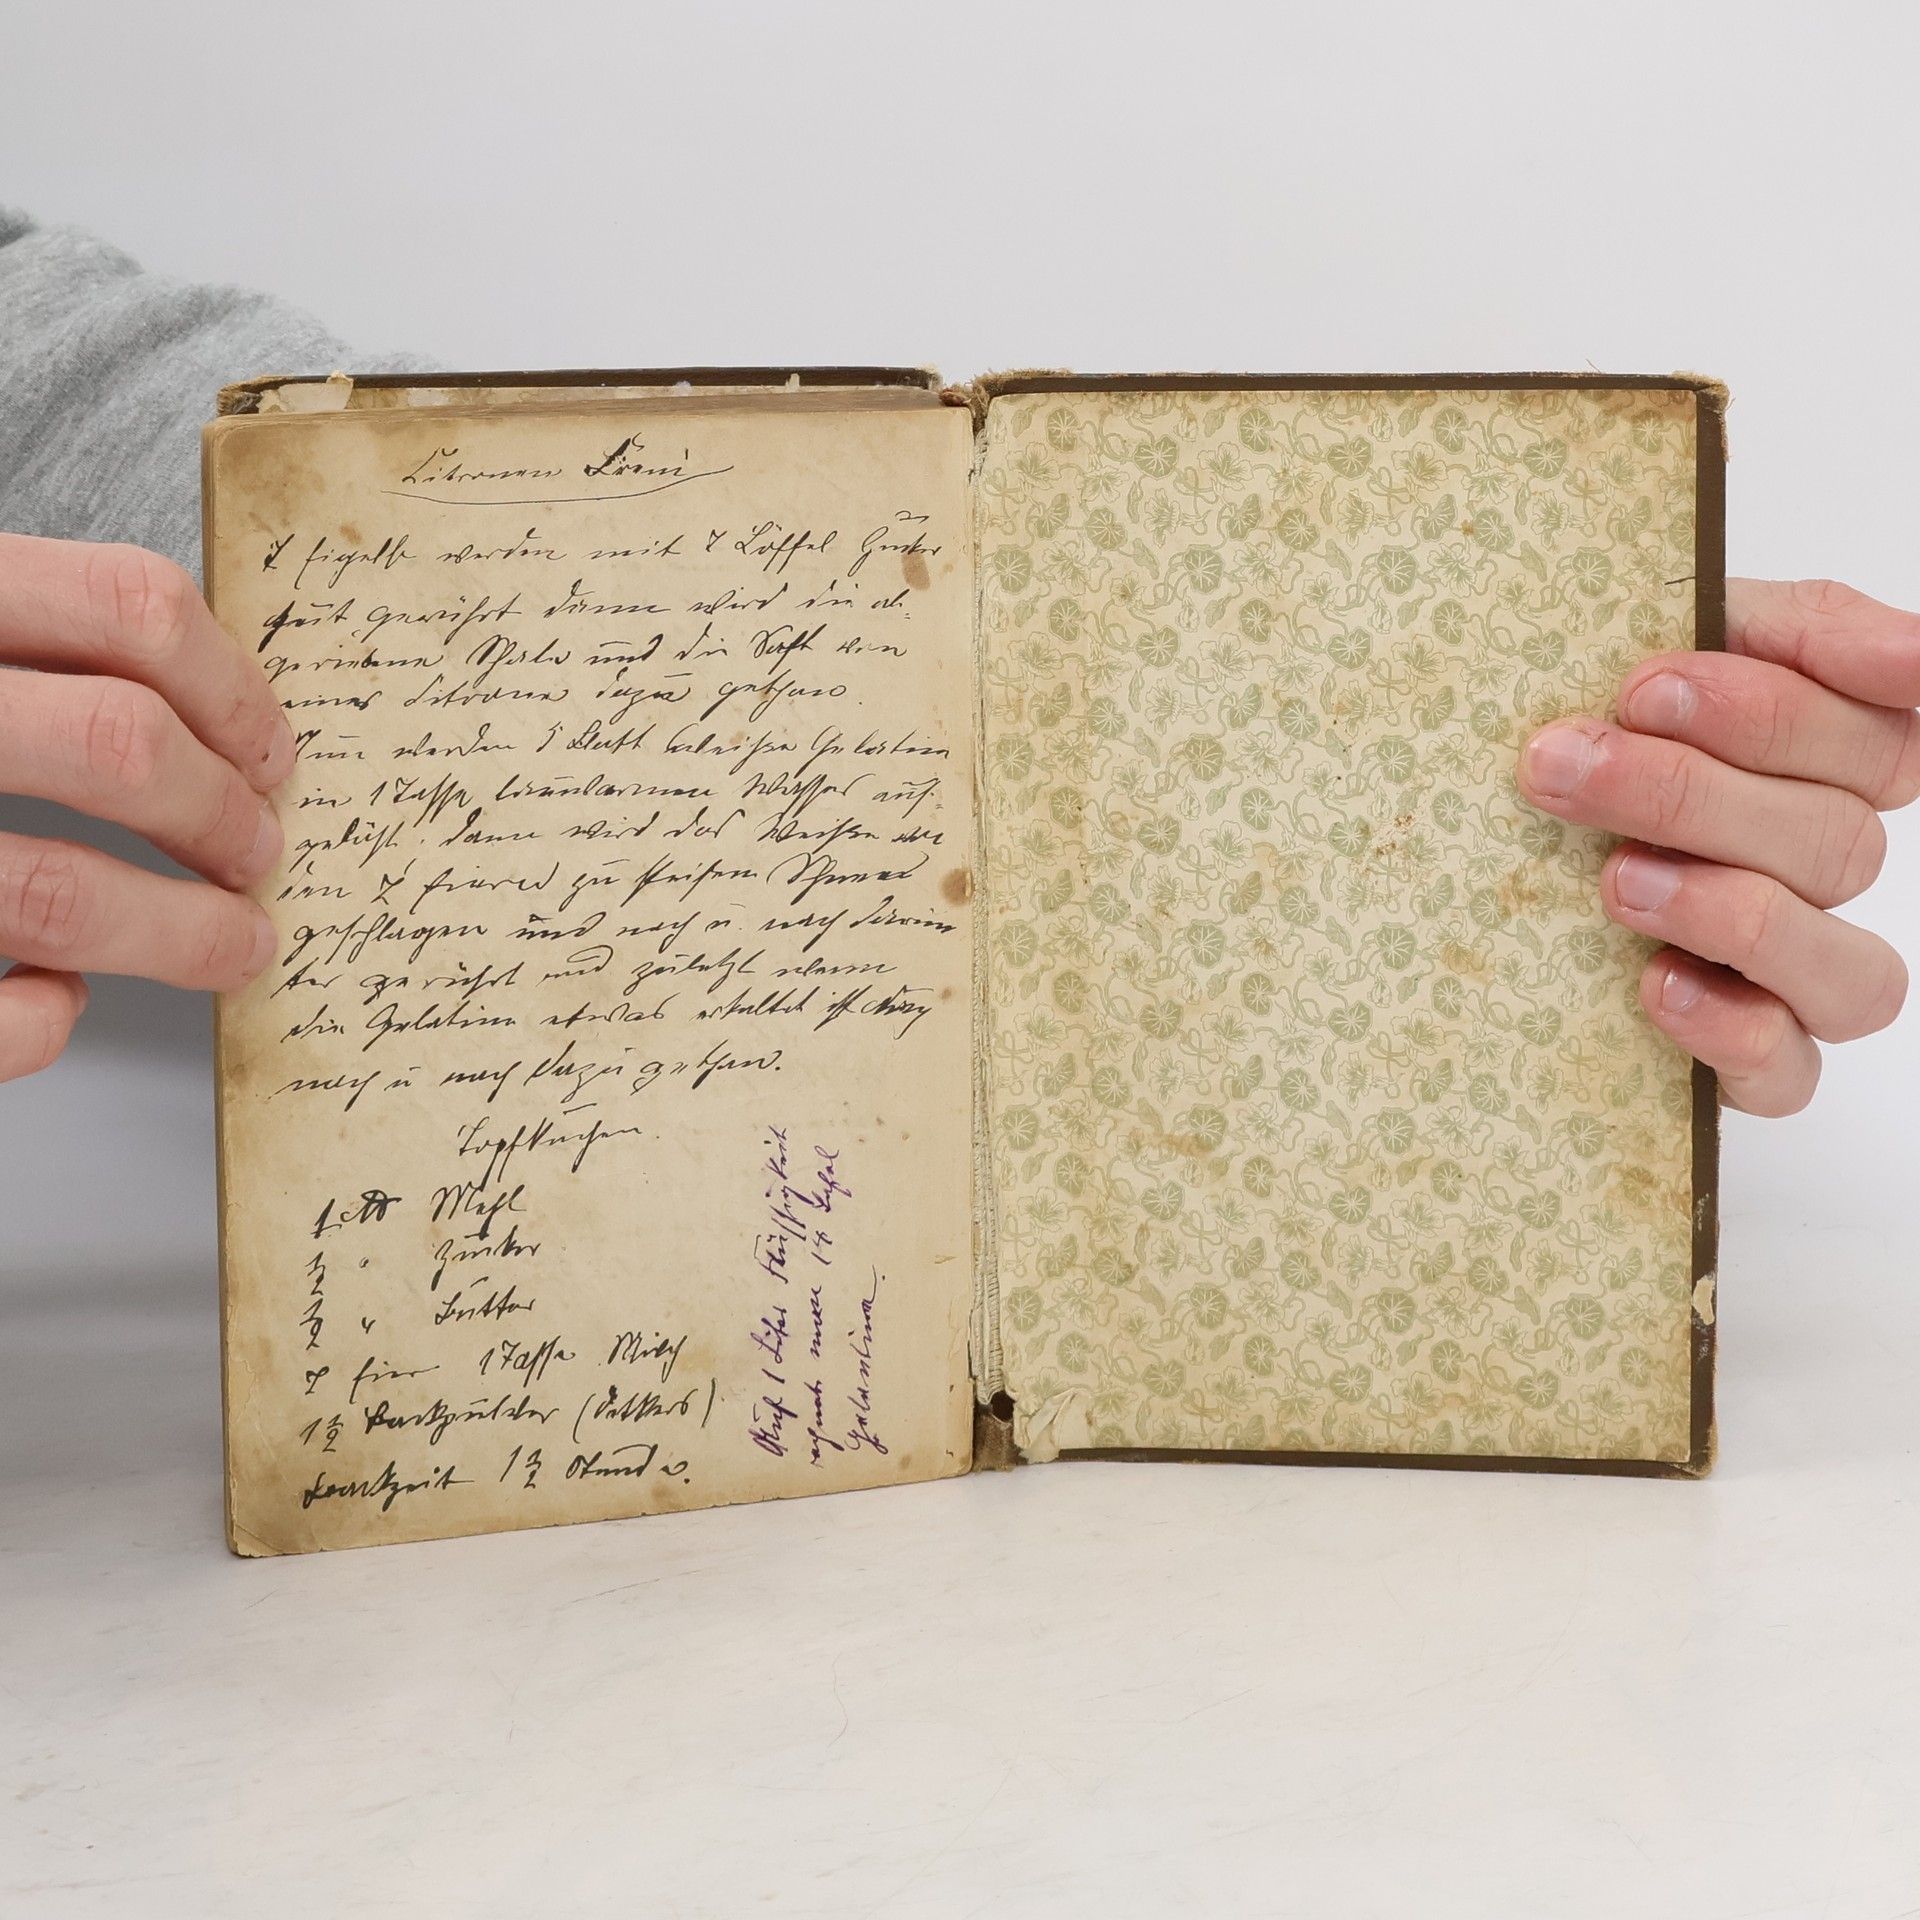 Citronen Krem
7 Eigelb werden mit 7 Löffel Zucker
gut gerührt dann wird die ab-
geriebene Schale und die Saft von
einer Citrone dazu gethan.
Nun werden 5 Blatt weiße Gelatine
in 1 Tasse lauwarmen Wasser auf-
gelöst. dann wird das Weiße von
den 7 Eiern zu steifem Schnee
geschlagen und nach u. nach darun-
ter gerührt und zuletzt wenn
die Gelatine etwas erkaltet ist
nach u nach dazu gethan.
Topfkuchen.
1 ℔ Mehl
½ " Zucker
½ " Butter
7 Eier 1 Tasse Milch
1½ Backpulver (Oetkers)
Backzeit 1½ Stunde.
Auf 1 Liter Flüssigkeit
rechnet man 18 Tafel
Gelantine.